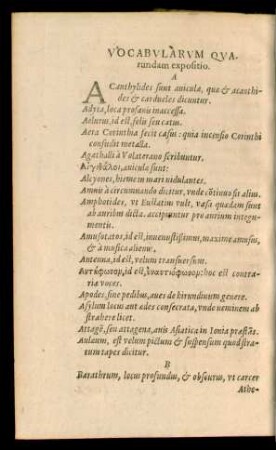 VOCABVLARVM QVA-
rundam expositio.
A
ACanthylides sunt auiculæ, quæ & acanthi-
des & carduelæs dicuntur.
Adyta, loca profanis inaccessa.
Aelurus, id est, felis seu catus.
Aera Corinthia fecit casus: quia incensio Corinthi
consudit metalla.
Agathalli à Volaterano scribuntur.
auiculæ sunt:
Alcyones, hiemem mari nidulantes.
Amnis à circumeando dictur, unde cōtinuò sit alius.
Amphotides, ut Eustatius vult, vasa quædam sunt
ab auribus dicta. accipiuntur pro aurium integu-
mentis.
Amusotator, id est, inuenustissimus, maximè amusus,
& à musica alienus.
Antenna, id est, velum transuersum.
id est, hoc est contra-
ria voces.
Apodes, sine pedibus, aues de hirundinum genere.
Asylum locus ant ædes consecrata, vnde neminem ab
strahere licet.
Attagē, seu attagena, auis Asiatica in Ionia præstās.
Aulæum, est velum pictum & suspensum quod stra-
tum tapes dicitur.
B
Barathrum, locus profundus, & obscurus, vt carcer
Athe-